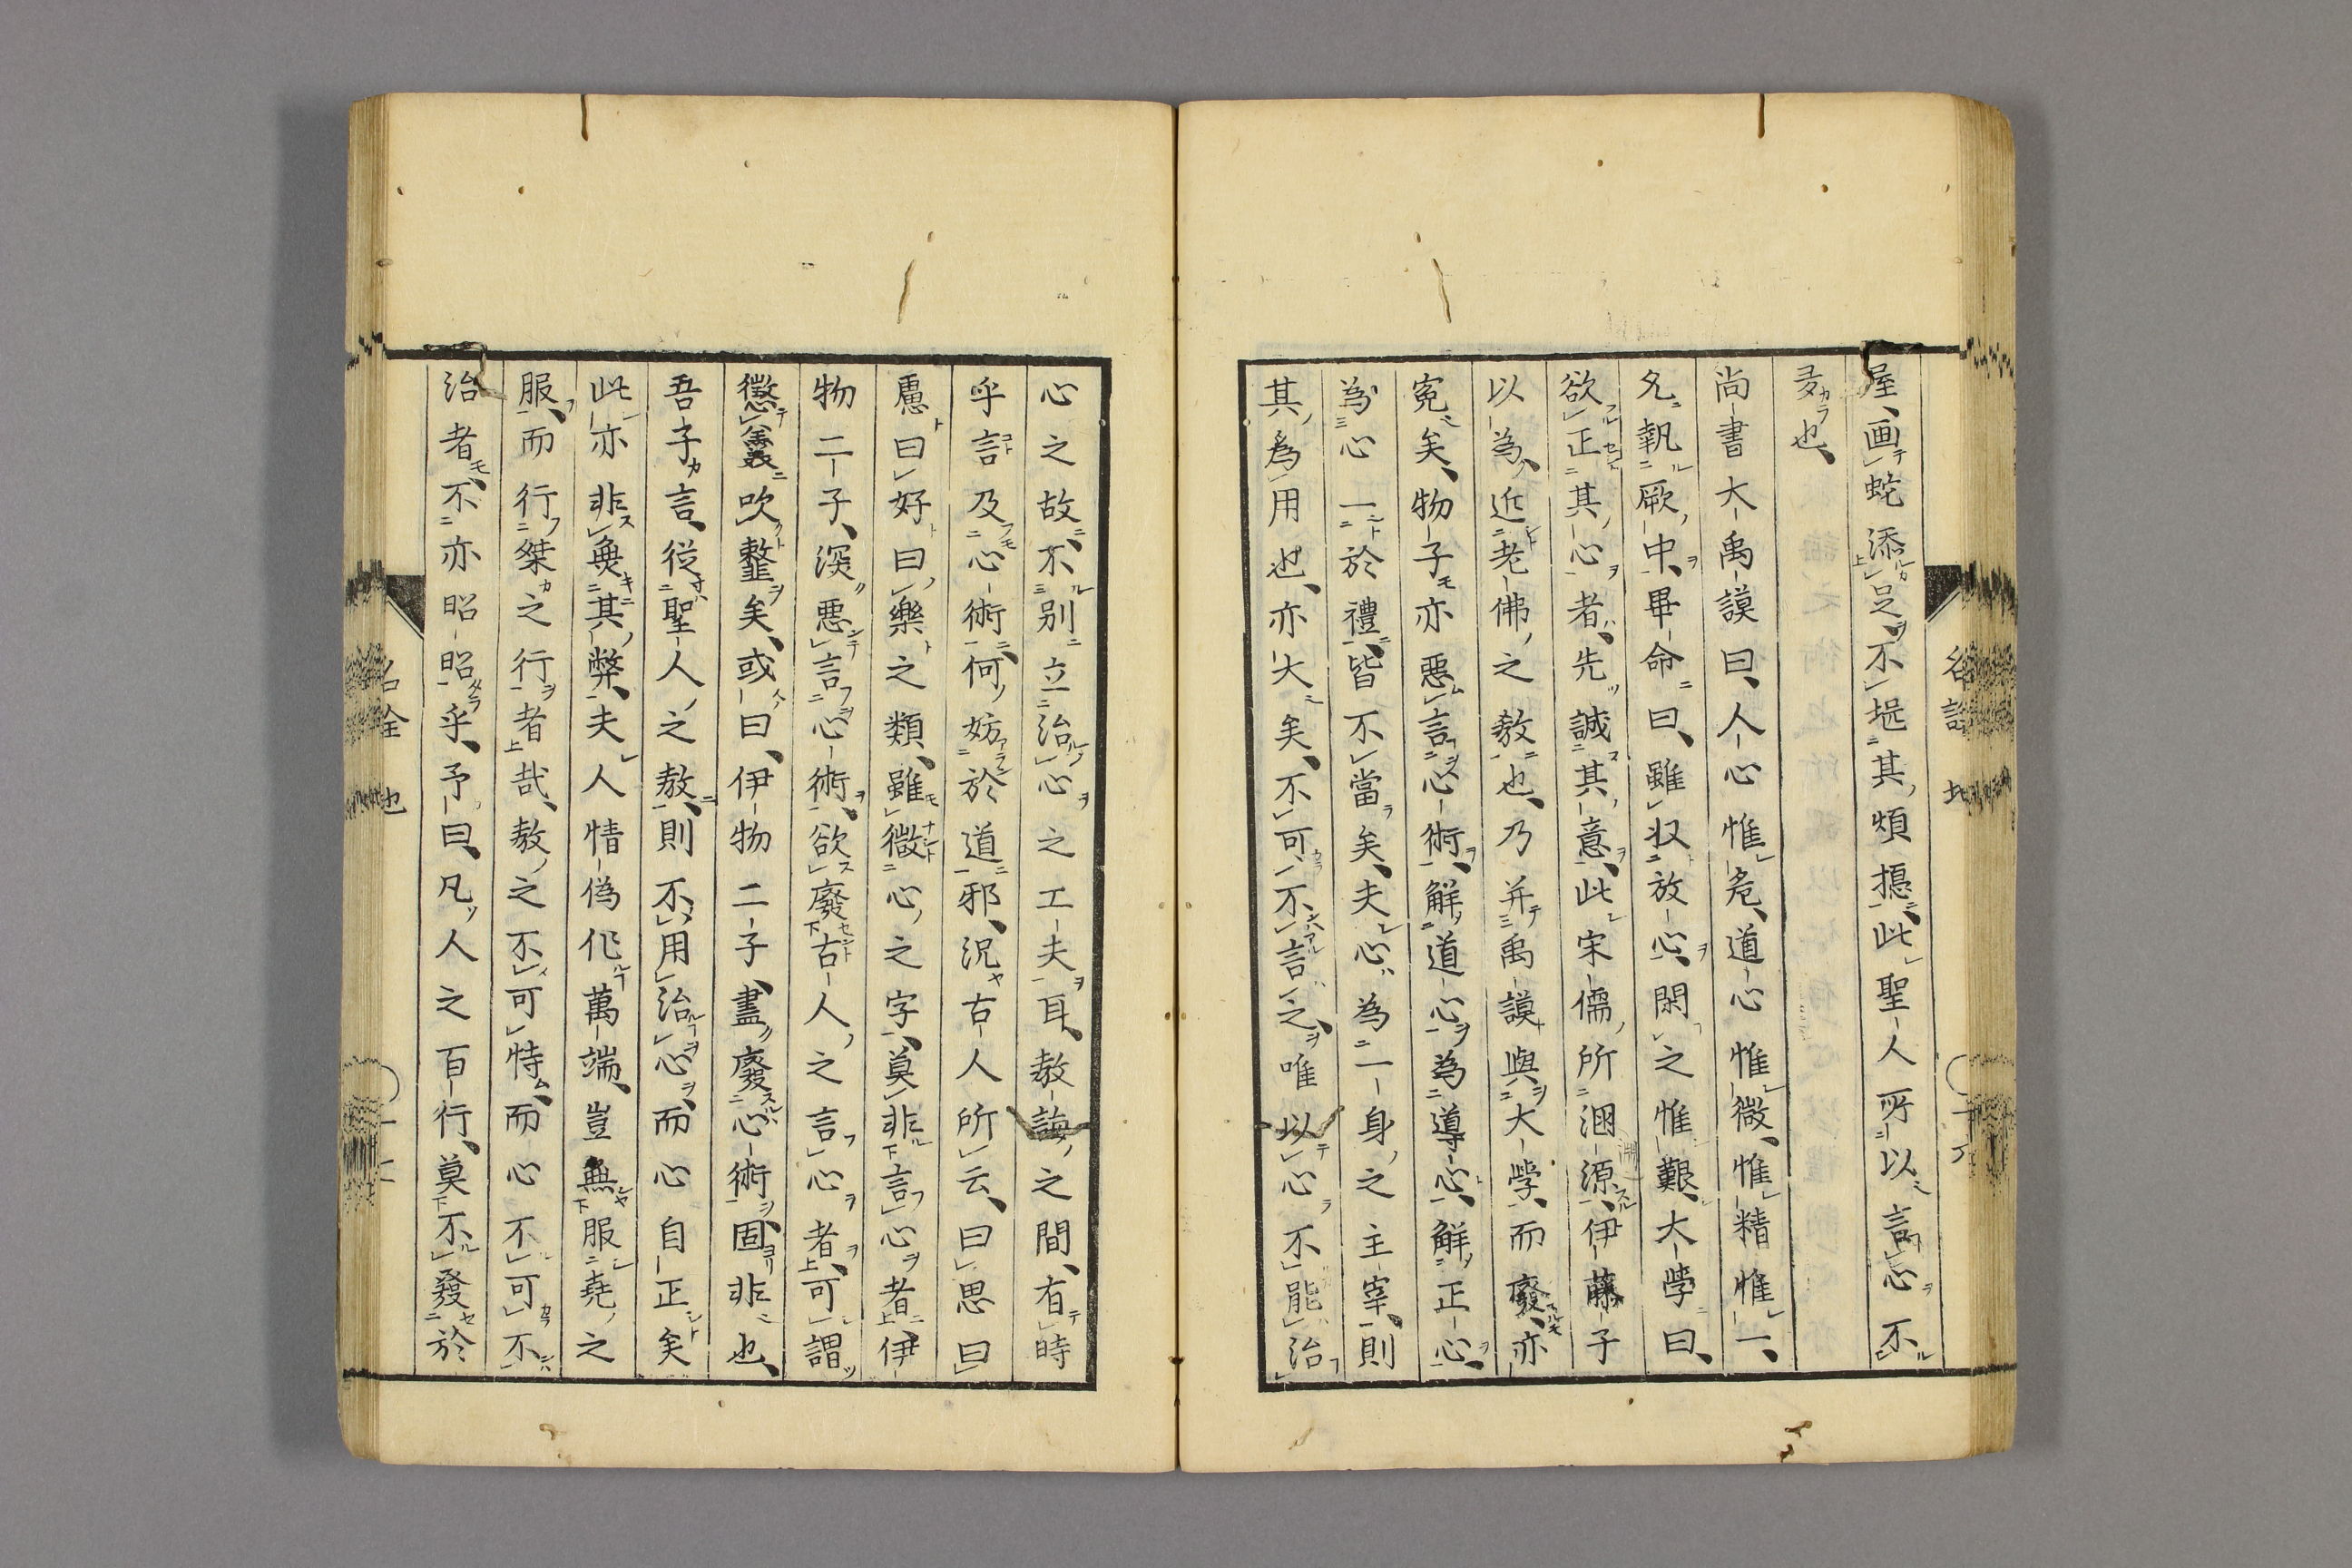 屋、画蛇添足、不堪其煩擾、此聖人所以言心不
多也、
尚書大禹謨曰、人心惟危、道心惟微、惟精惟一、
允執厥中、畢命曰、雖収放心、閑之惟艱、大學曰、
欲正其心者、先誠其意、此宋儒所淵源、伊藤子
以為、近老佛之教也、乃并禹謨與大學、而廢、亦
寃矣、物子亦惡言心術、解道心為導心、解正心、
為心一於禮、皆不當矣、夫心為一身之主宰、則
其為用也、亦大矣、不可不言之、唯以心不能治
心之故、不別立治心之工夫耳、教誨之間、有時
乎言及心術、何妨於道邪、況古人所云、曰思曰
慮曰好曰樂之類、雖微心之字、莫非言心者、伊
物二子、深惡言心術、欲廢古人之言心者、可謂
懲羹吹韲矣、或曰、伊物二子、盡廢心術、固非也、
吾子言、從聖人之教、則不用治心、而心自正矣
此亦非無其弊、夫人情偽化萬端、豈無服堯之
服、而行桀之行者哉、教之不可恃、而心不可不
治者、不亦昭昭乎、予曰、凡人之百行、莫不發於